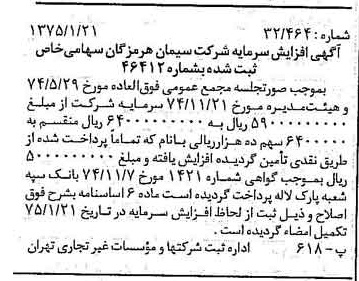 شماره: ۳۲/۴۶۴ ۱۳۷۵/۱/۲۱
آگهی افزایش سرمایه شرکت سیمان هرمزگان سهامی خاص
ثبت شده بشماره ۴۶۴۱۲
بموجب صورتجلسه مجمع عمومی فوق‌العاده مورخ ۷۴/۵/۲۹
و هیئت‌مدیره مورخ ۷۴/۱۱/۲۱ سرمایه شرکت از مبلغ
۵۹۰۰۰۰۰۰۰۰۰ ریال به ۶۴۰۰۰۰۰۰۰۰۰ ریال منقسم به
۶۴۰۰۰۰۰ سهم ده هزارریالی بانام که تماماً پرداخت شده از
طریق نقدی تأمین گردیده افزایش یافته و مبلغ ۵۰۰۰۰۰۰۰۰۰
ریال بموجب گواهی شماره ۱۴۲۱ مورخ ۷۴/۱۱/۷ بانک سپه
شعبه پارک لاله پرداخت گردیده است ماده ۶ اساسنامه بشرح فوق
اصلاح و ذیل ثبت از لحاظ افزایش سرمایه در تاریخ ۷۵/۱/۲۱
تکمیل امضاء گردیده است.
پ-۶۱۸ اداره ثبت شرکتها و مؤسسات غیر تجاری تهران